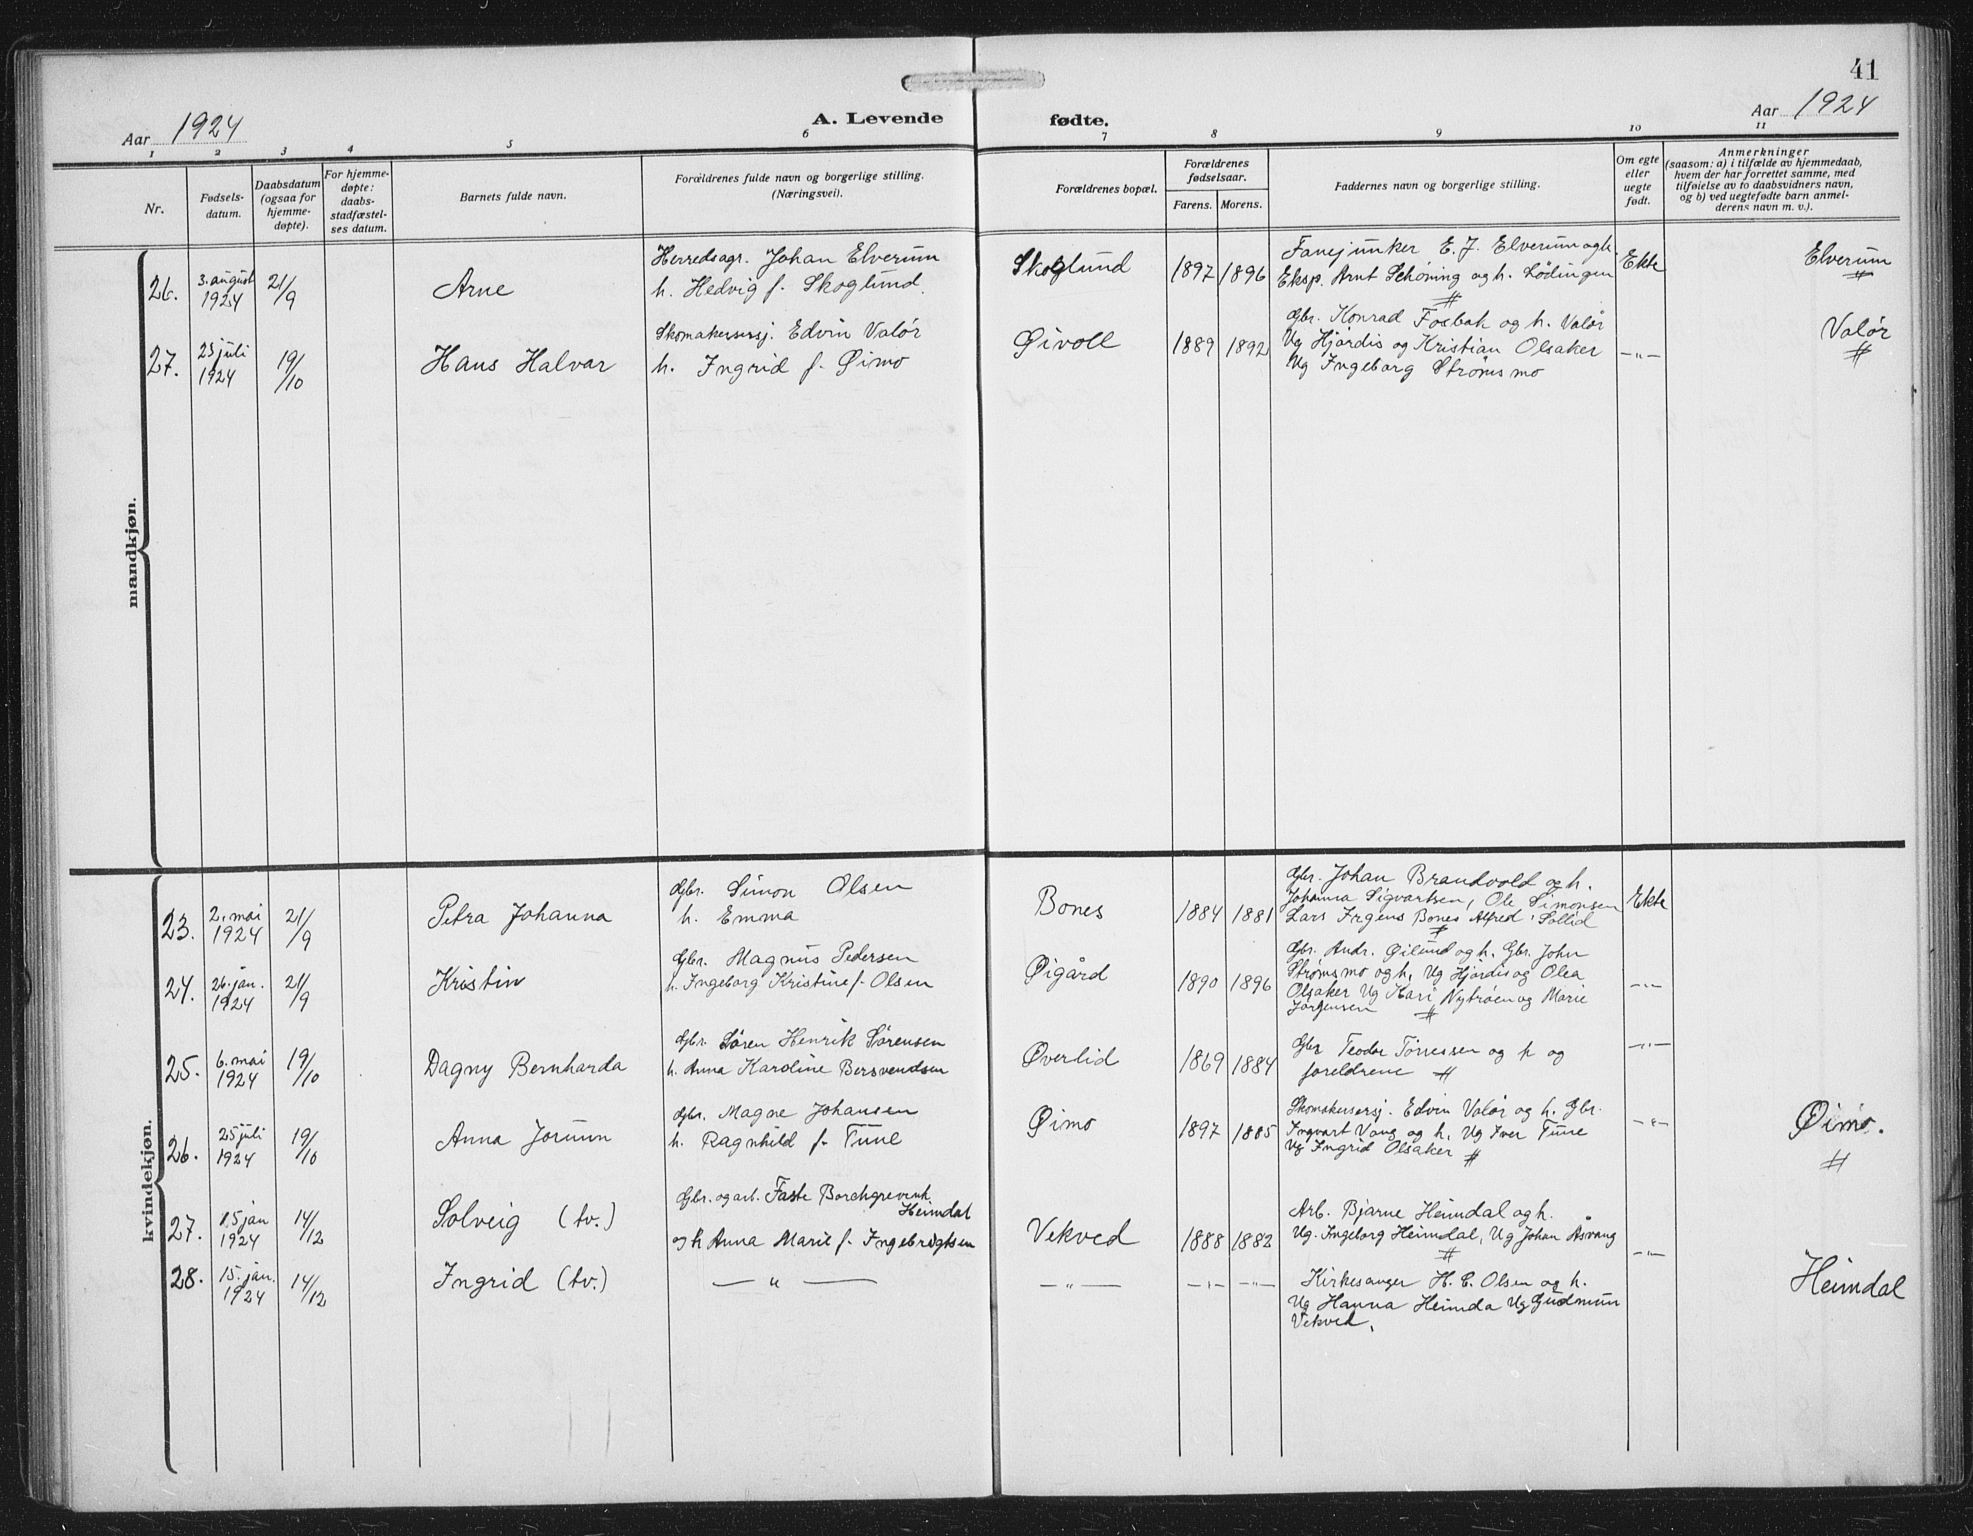 41
Aar 1924
A. Levende fødte.
Aar 1924
1 2 3 4 5 6 7 8 9 10 11
Nr.
Fødsels-
datum.
Daabsdatum
(ogsaa for
hjemme-
døpte).
For hjemme-
døpte:
daabs-
stadfæstel-
ses datum.
Barnets fulde navn.
Forældrenes fulde navn og borgerlige stilling.
(Næringsvei).
Forældrenes bopæl.
Forældrenes
fødselsaar.
Farens. Morens.
Faddernes navn og borgerlige stilling.
Om egte
eller
uegte
født.
Anmerkninger
(saasom: a) i tilfælde av hjemmedaab,
hvem der har forrettet samme, med
tilføielse av to daabsvidners navn,
og b) ved uegtefødte barn anmel-
derens navn m. v.).
mandkjøn.
26.
3. august
1924
21/9
Arne
Herredsagr. Johan Elverum
h. Hedvig f. Skoglund
Skoglund
1897 1896
Fanejunker E. J. Elverum og h.
Eksp. Arnt Schøning og h. Lødingen
#
Ekte
Elverum
#
27.
23 juli
1924
19/10
Hans Halvar
Skomakersersj. Edvin Valør
h. Ingrid f. Øimo
Øivoll
1889 1892
Gbr. Konrad Fosbak og h. Valør
Ug Hjørdis og Kristian Olsaker
Ug Ingeborg Strømsmo
—"—
Valør
#
kvindekjøn.
23.
2. mai
1924
21/9
Petra Johanna
Gbr. Simon Olsen
h. Emma
Bones
1884 1881
Gbr. Johan Brandvold og h.
Johanna Sigvartsen, Ole Simonsen
Lars Irgens Bones Alfred Sollid
#
Ekte
24.
26. jan.
1924
21/9
Kristin
Gbr. Magnus Pedersen
h. Ingeborg Kristine f. Olsen
Øigård
1890 1896
Gbr. Andr. Øilund og h. Gbr. John
Strømsmo og h. Ug Hjørdis og Olea
Olsaker Ug Kari Nybrøen og Marie
Jørgensen #
—"—
25.
6. mai
1924
19/10
Dagny Bernharda
Gbr. Søren Henrik Sørensen
h. Anna Karoline Bersvendsen
Øverlid
1869 1884
Gbr Teodor Tørressen og h og
foreldrene #
—"—
26.
25 juli
1924
19/10
Anna Jorunn
Gbr. Magne Johansen
h. Ragnhild f. Tune
Øimo
1897 1885
Skomakersersj. Edvin Valør og h. Gbr.
Ingvart Vang og h. Ug Iver Tune
Ug Ingrid Olsaker #
—"—
Øimo.
#
27.
15 jan
1924
14/12
Solveig (tv.)
Gbr. og arb. Faste Borchgrevink
Heimdal
og h Anna Marie f. Ingebrigtsen
Vekved
1888 1882
Arb. Bjarne Heimdal og h.
Ug. Ingeborg Heimdal, Ug Johan Åsvang
#
—"—
28.
15. jan.
1924
14/12
Ingrid (tv.)
— " —
— " —
—"— —"—
Kirkesanger H. C. Olsen og h.
Ug Hanna Heimda Ug Gudmun
Vekved.
Heimdal